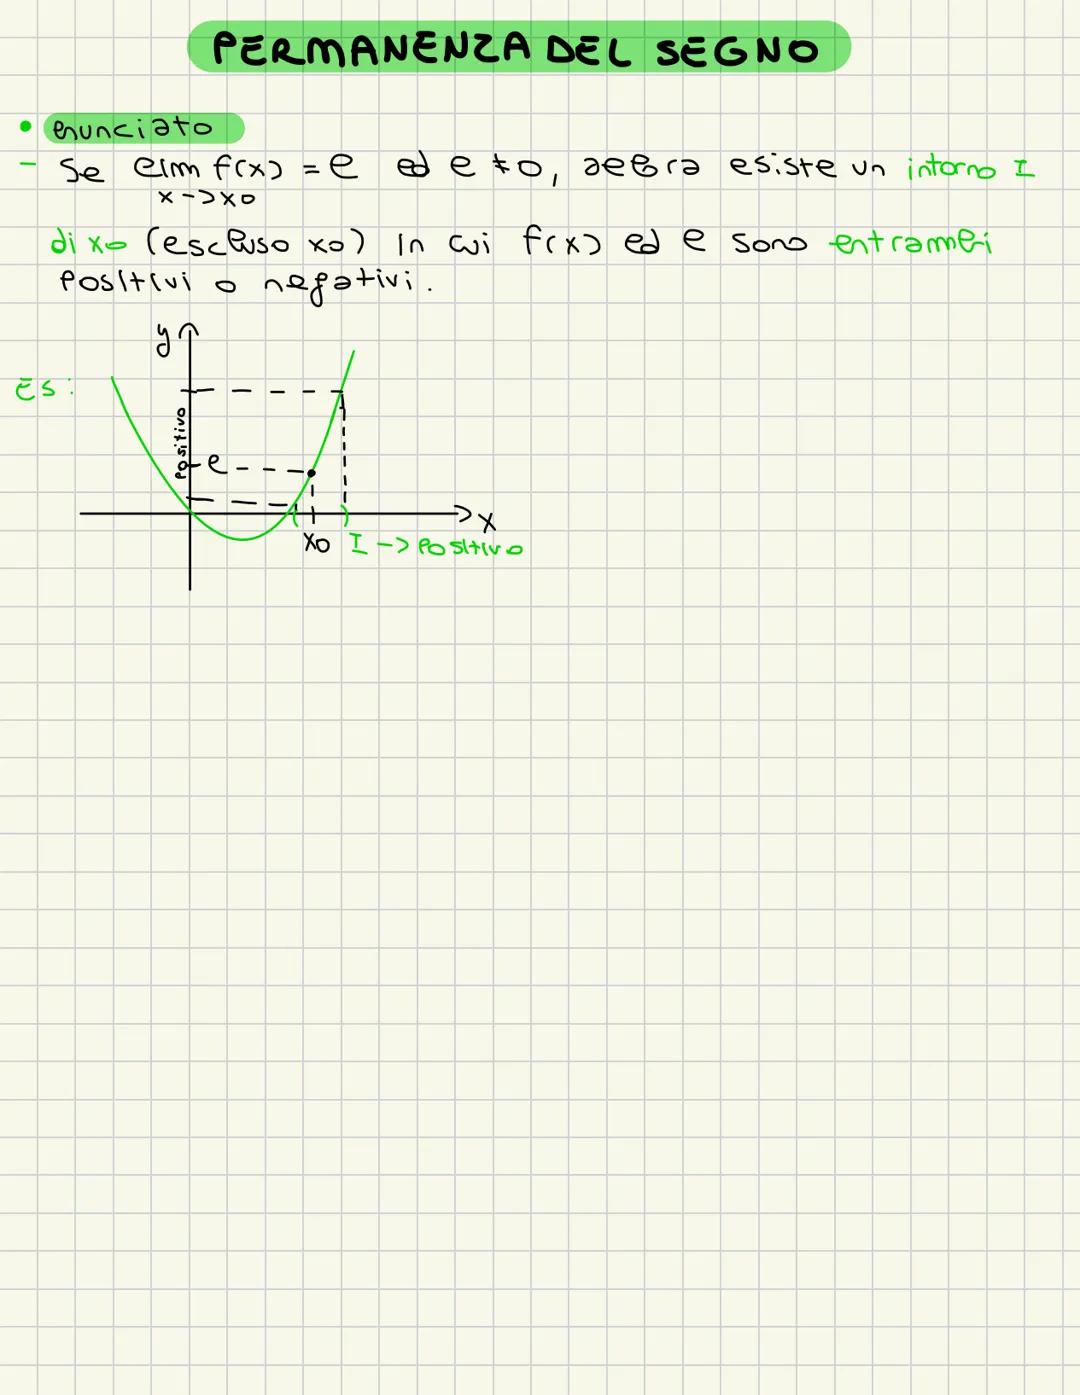 PERMANENZA DEL SEGNO
• enunciato
- Se lim f(x) = l ed l ≠ 0, allora esiste un intorno I
x->x0
di x0 (escluso x0) in cui f(x) ed l sono entrambi
positivi o negativi.
y
Es:
positivo
l
x
x0 I -> positivo